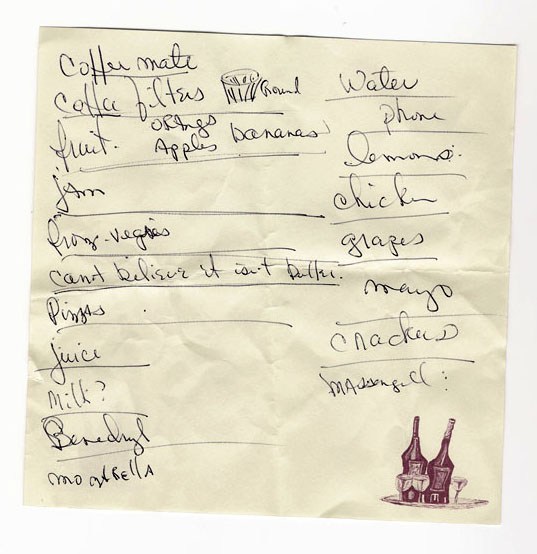 Coffee mate
Coffee filters Round
fruit. ORANgs bananas
Apples
Jam
froz-vegies
can't believe it isn't butter.
Pizzas
juice
Milk?
Benedryl
mozarella
Water
phone
lemons.
chicken
grapes
mayo
crackers
MAssengill: